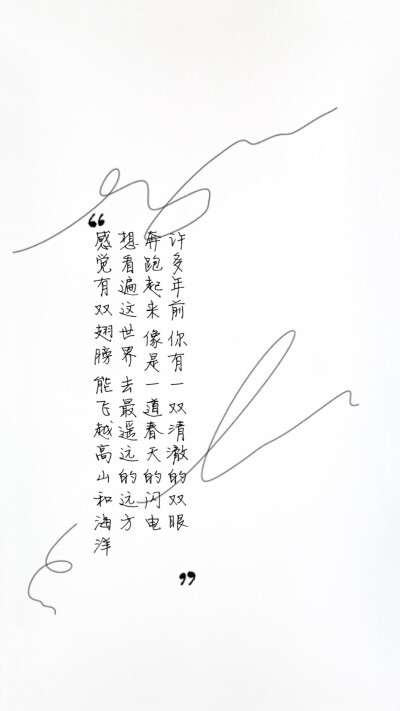 许多年前 你有一双清澈的双眼
奔跑起来 像是一道春天的闪电
想看遍这世界 去最遥远的远方
感觉有双翅膀 能飞越高山和海洋